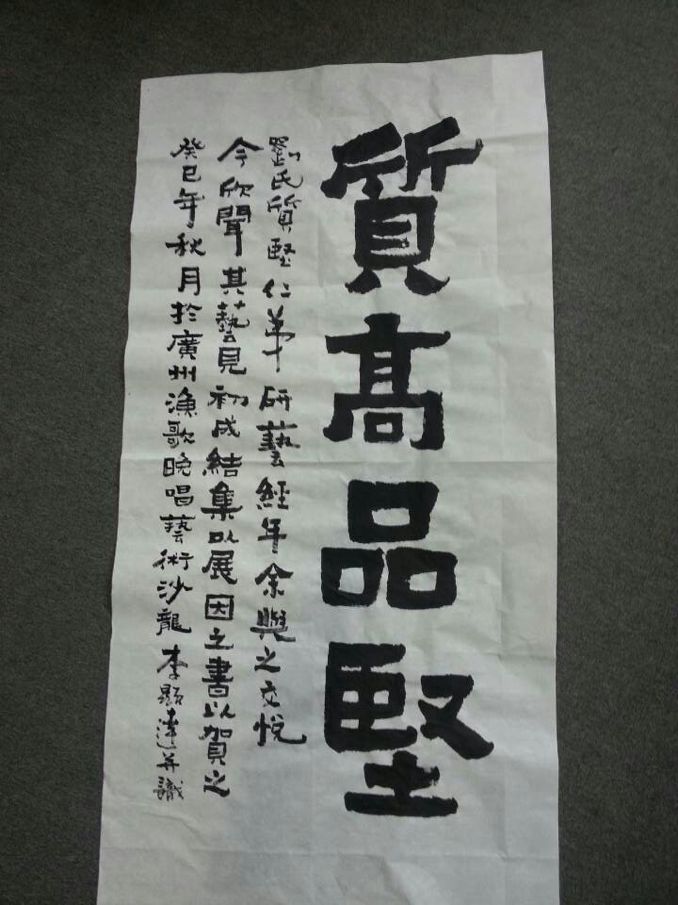 質高品堅
劉氏質堅仁弟研藝經年余與之交悅
今欣聞其藝見初成結集以展因之書以賀之
癸巳年秋月於廣州漁歌晚唱藝術沙龍李顯達并識